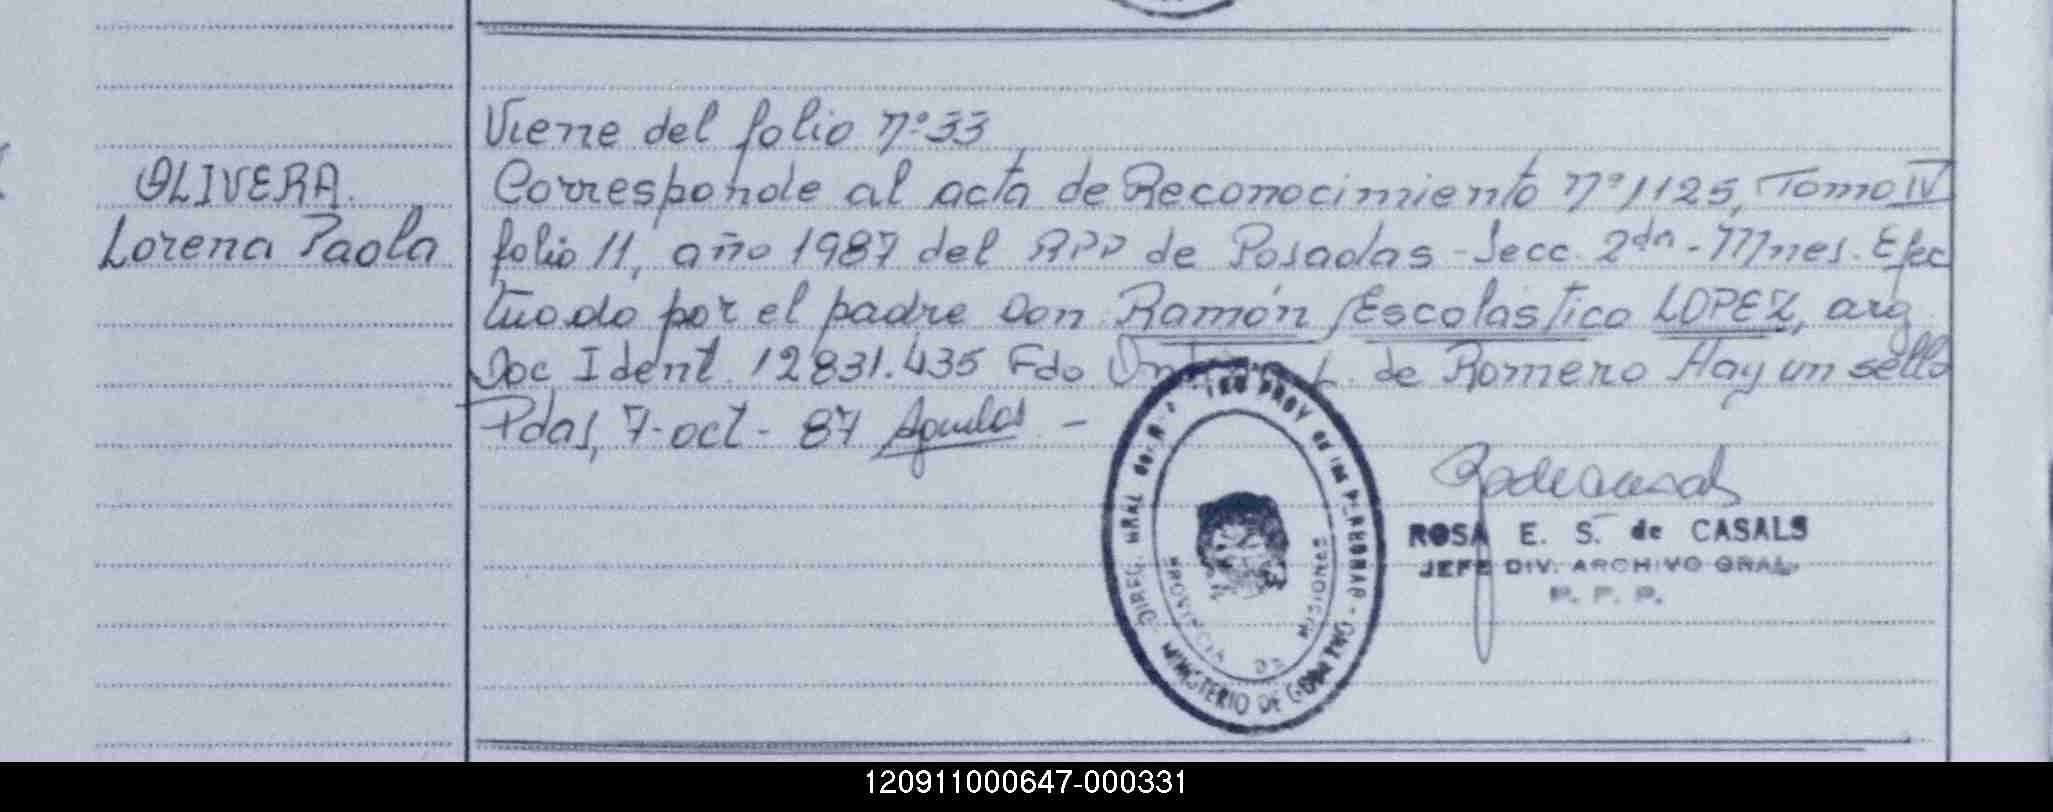 Viene del folio nº 33
OLIVERA.
Lorena Paola
Corresponde al acta de Reconocimiento nº 1125, Tomo IV
folio 11, año 1987 del RPP de Posadas - Secc. 2da - Mnes. Efec
tuado por el padre Don Ramón Escolástico LOPEZ, arg
Doc Ident. 12831.435 Fdo de Romero Hay un sello
Pdas, 7-oct-87
ROSA E. S. de CASALS
JEFE DIV. ARCHIVO GRAL.
P. P. P.
MINISTERIO DE
PROVINCIA DE MISIONES
120911000647-000331